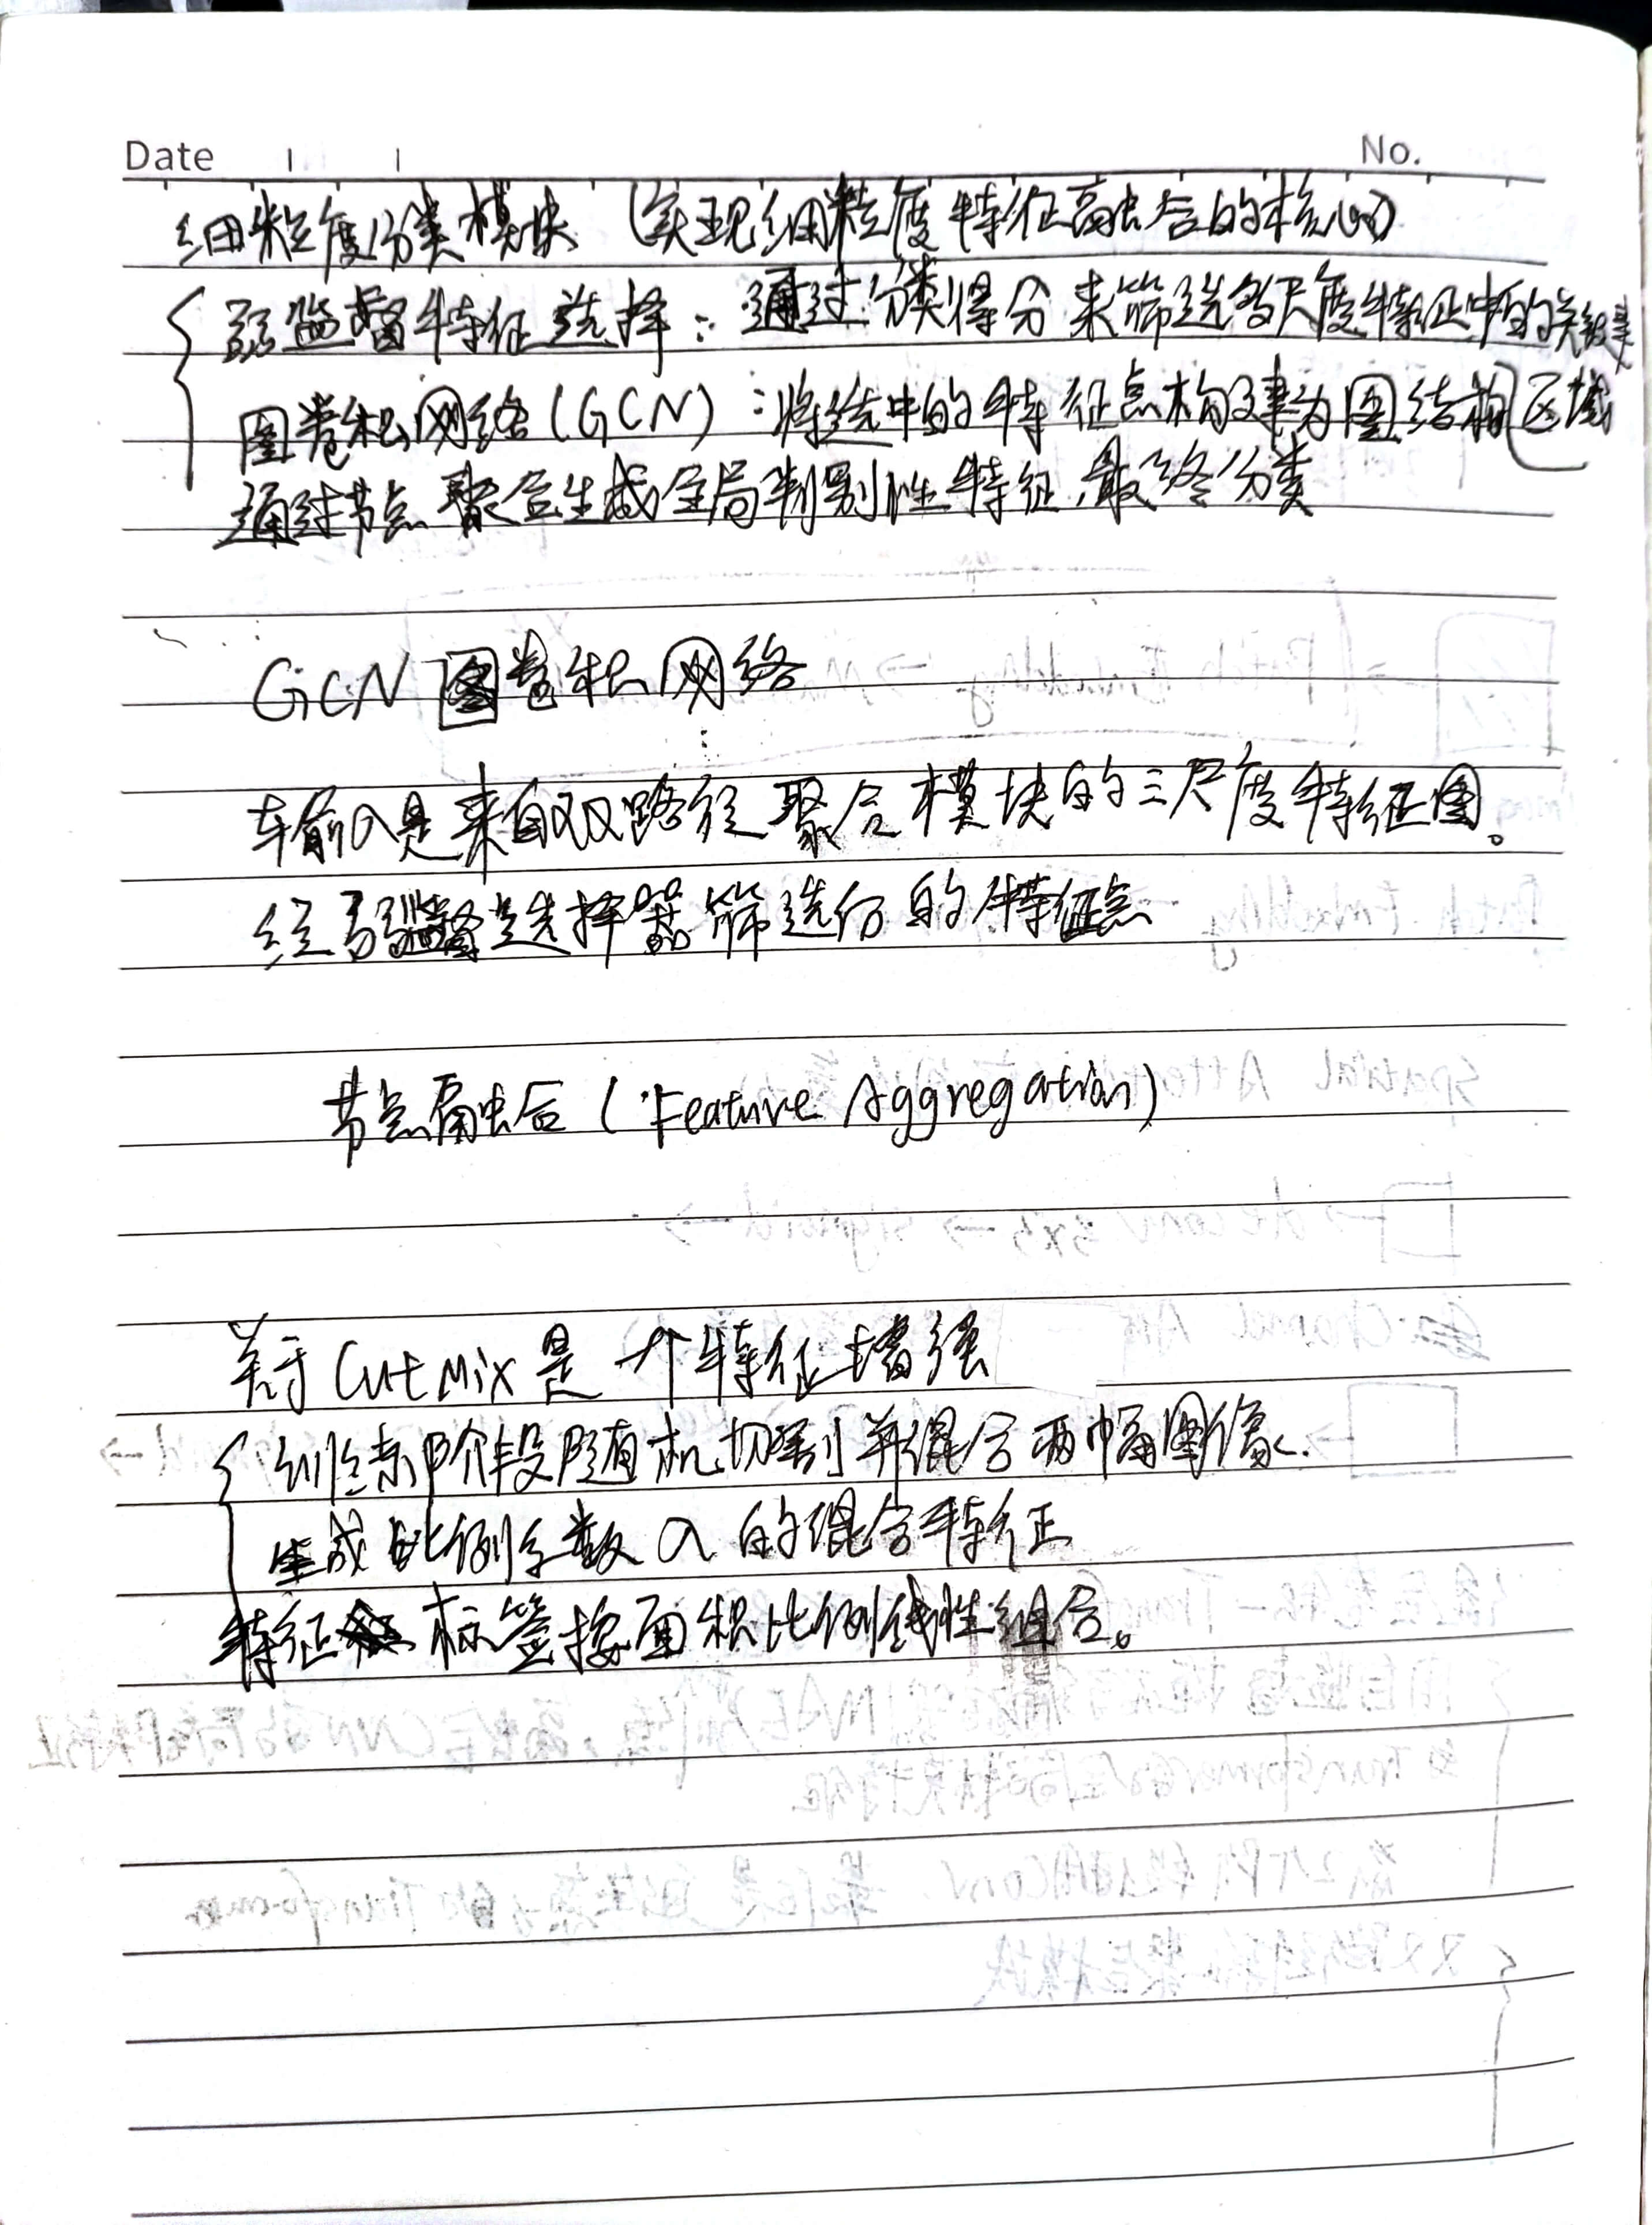 Date
No.
细粒度分类模块 (实现细粒度特征融合的核心)
弱监督特征选择：通过分类得分来筛选多尺度特征中的关键
区域
图卷积网络(GCN)：将选中的特征点构建为图结构
通过节点聚合生成全局判别性特征,最终分类
GCN 图卷积网络
输入是来自双路径聚合模块的三尺度特征图。
经弱监督选择器筛选后的特征点
节点融合 (Feature Aggregation)
关于CutMix是一个特征增强
训练阶段随机切割并混合两幅图像.
生成比例系数 λ 的混合特征
特征 标签按面积比例线性组合。